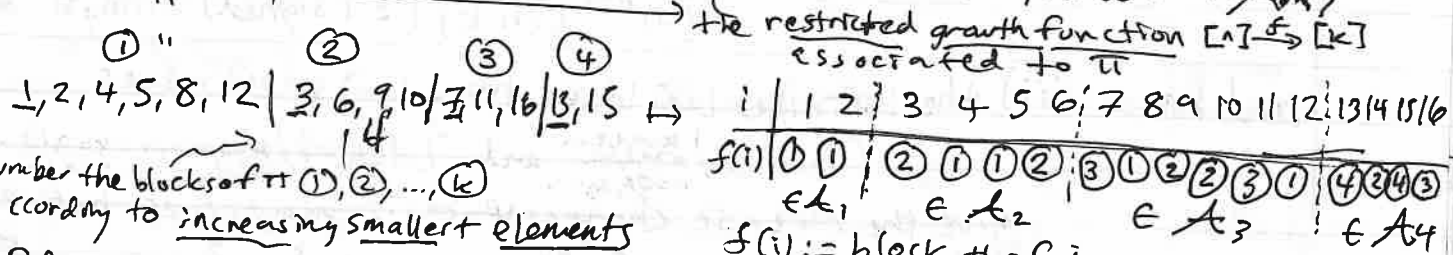 the restricted growth function [n] f→ [k]
associated to π
① " ② ③ ④
1, 2, 4, 5, 8, 12 | 3, 6, 9, 10 | 7, 11, 16 | 13, 15 ↦
14
i | 1 2 3 4 5 6 7 8 9 10 11 12 13 14 15 16
f(i) ① ① ② ① ① ② ③ ① ② ② ③ ① ④ ② ④ ③
∈ A1 ∈ A2 ∈ A3 ∈ A4
number the blocks of π ①, ②, ..., ⓚ
ccording to increasing smallest elements
f(i) := block